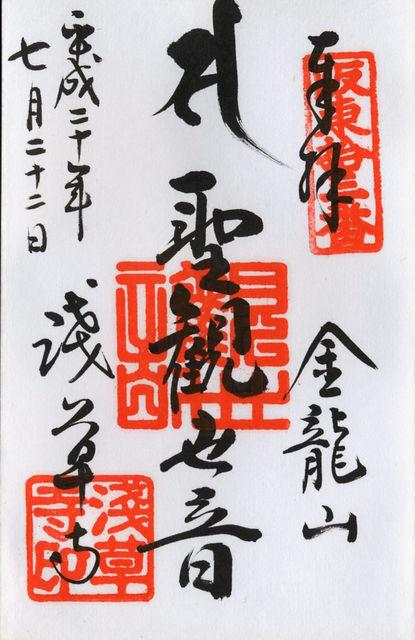 奉拝
坂東拾三番
金龍山
聖観世音
平成二十年
七月二十二日
浅草寺
淺草
寺印